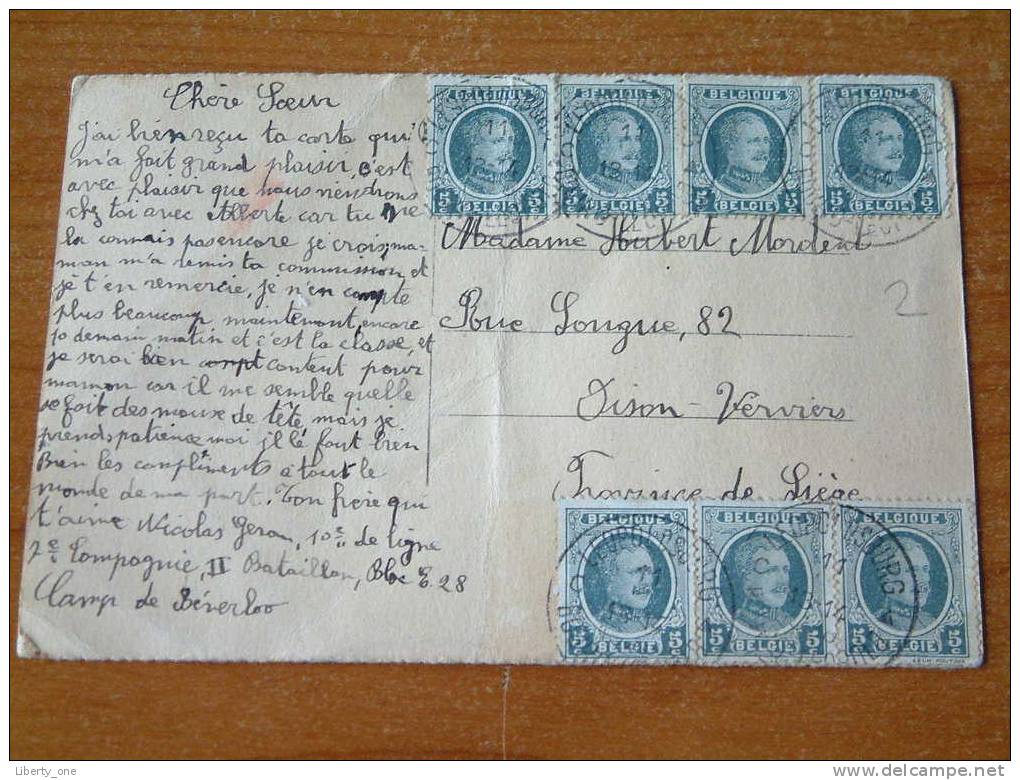 Chère Sœur
J'ai bien reçu ta carte qui
m'a fait grand plaisir, c'est
avec plaisir que nous viendrons
chez toi avec Alberte car tu ne
la connais pas encore je crois, ma-
man m'a remis ta commission, et
je t'en remercie, je n'en compte
plus beaucoup maintenant, encore
10 demain matin et c'est la classe, et
je serai bien content pour
maman car il me semble quelle
se fait des maux de tête, mais je
prends patience moi il le faut bien
Bien les compliments à tout le
monde de ma part. Ton frère qui
t'aime Nicolas Geron, 10e de ligne
2e Compagnie, II Bataillon, Bloc E. 28
Camp de Béverloo
BELGIQUE BELGIQUE BELGIQUE BELGIQUE
5c BELGIE 5c 5c BELGIE 5c 5c BELGIE 5c 5c BELGIE 5c
Madame Hubert Mordent
Rue Longue, 82
Dison-Verviers
Province de Liège
2
BELGIQUE BELGIQUE BELGIQUE
5c BELGIE 5c 5c BELGIE 5c 5c BELGIE 5c
Liberty_one
delcampe.net